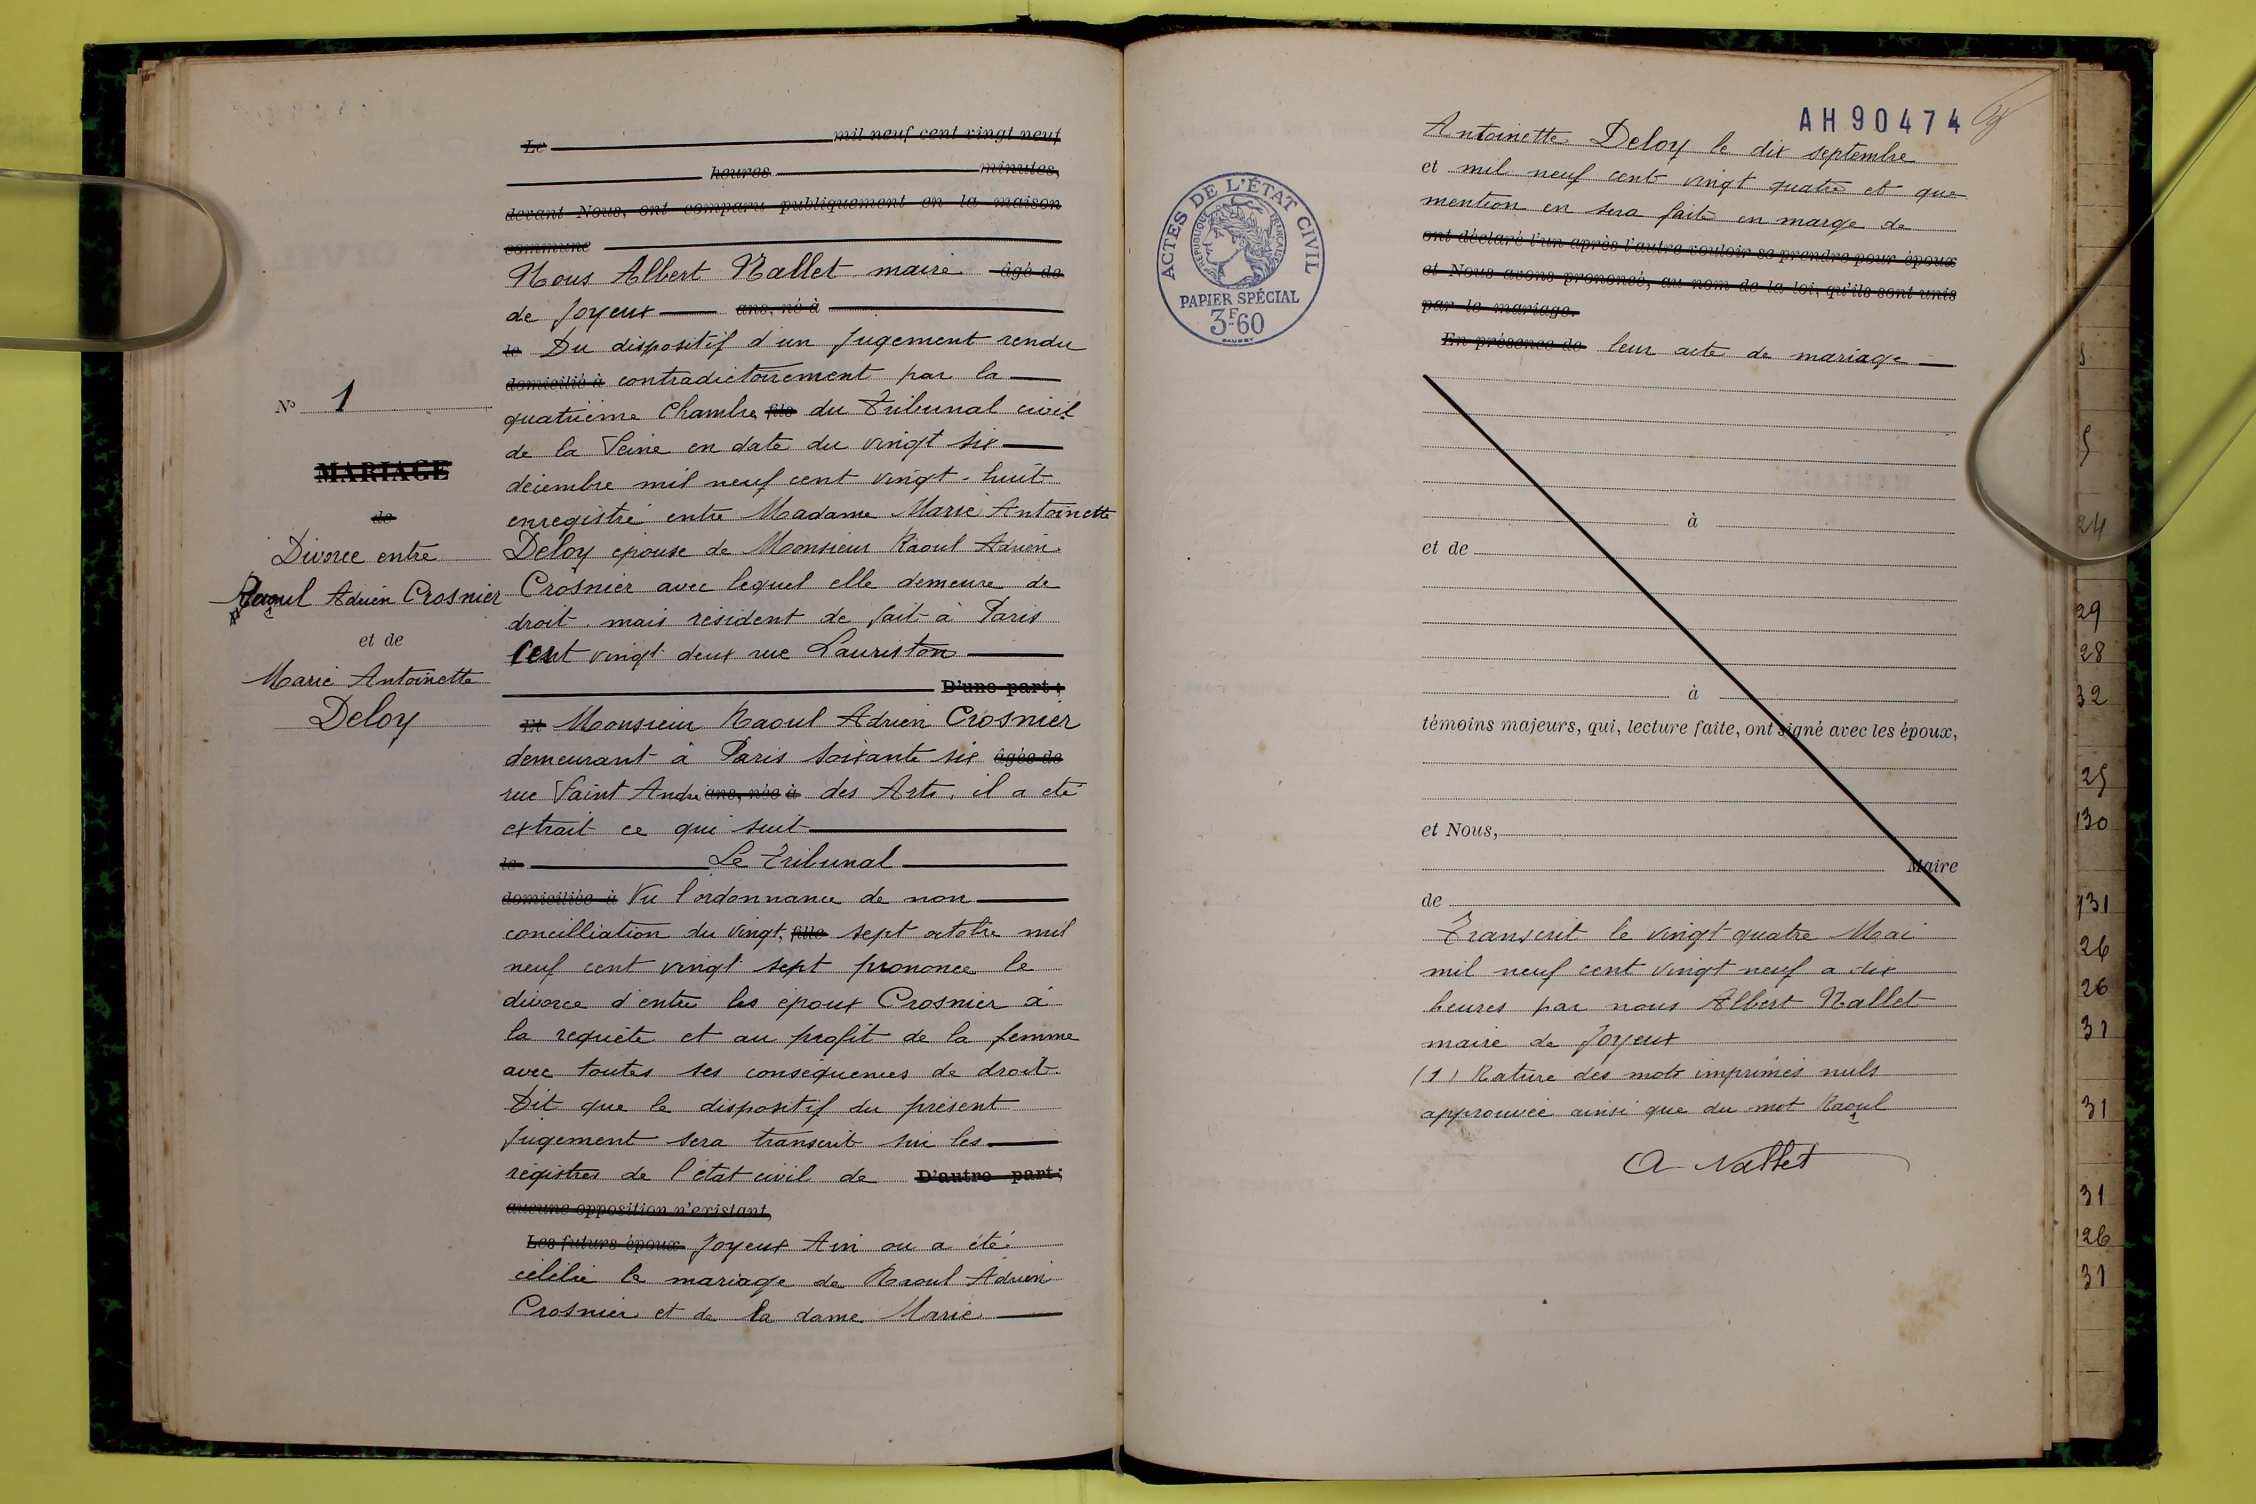 Le mil neuf cent vingt neuf
heures minutes,
devant Nous, ont comparu publiquement en la maison
commune
Nous Albert Nallet maire âgé de
de Joyeux ans, né à
le Du dispositif d'un Jugement rendu
domicilié à contradictoirement par la
quatrième Chambre fils du Tribunal civil
de la Seine en date du vingt six
décembre mil neuf cent vingt-huit
enregistré entre Madame Marie Antoinette
Deloy épouse de Monsieur Raoul Adrien
Crosnier avec lequel elle demeure de
droit mais résident de fait à Paris
cent vingt deux rue Lauriston
D'une part ;
Et Monsieur Raoul Adrien Crosnier
demeurant à Paris soixante six âgée de
rue Saint André ans, née à des Arts, il a été
extrait ce qui suit
le Le Tribunal
domiciliée à Vu l'ordonnance de non
concilliation du vingt fille sept octobre mil
neuf cent vingt sept prononce le
divorce d'entre les époux Crosnier à
la requète et au profit de la femme
avec toutes ses conséquences de droit.
Dit que le dispositif du présent
Jugement sera transcrit sur les
régistres de l'état civil de D'autre part ;
aucune opposition n'existant,
Les futurs époux Joyeux Ain ou a été
célébré le mariage de Raoul Adrien
Crosnier et de la dame Marie
No 1
MARIAGE
de
Divorce entre
Raoul Adrien Crosnier
et de
Marie Antoinette
Deloy
AH90474
ACTES DE L'ÉTAT CIVIL
RÉPUBLIQUE FRANÇAISE
PAPIER SPÉCIAL
3F60
Antoinette Deloy le dix septembre
et mil neuf cent vingt quatre et que
mention en sera faite en marge de
ont déclaré l'un après l'autre vouloir se prendre pour époux
et Nous avons prononcé, au nom de la loi, qu'ils sont unis
par le mariage.
En présence de leur acte de mariage
à
et de
à
témoins majeurs, qui, lecture faite, ont signé avec les époux,
et Nous,
Maire
de
Transcrit le vingt quatre Mai
mil neuf cent vingt neuf a dix
heures par nous Albert Nallet
maire de Joyeux
(1) Rature des mots imprimés nuls
approuvée ainsi que du mot Raoul
A Nallet
5
24
29
28
32
25
130
131
26
26
31
31
31
26
31